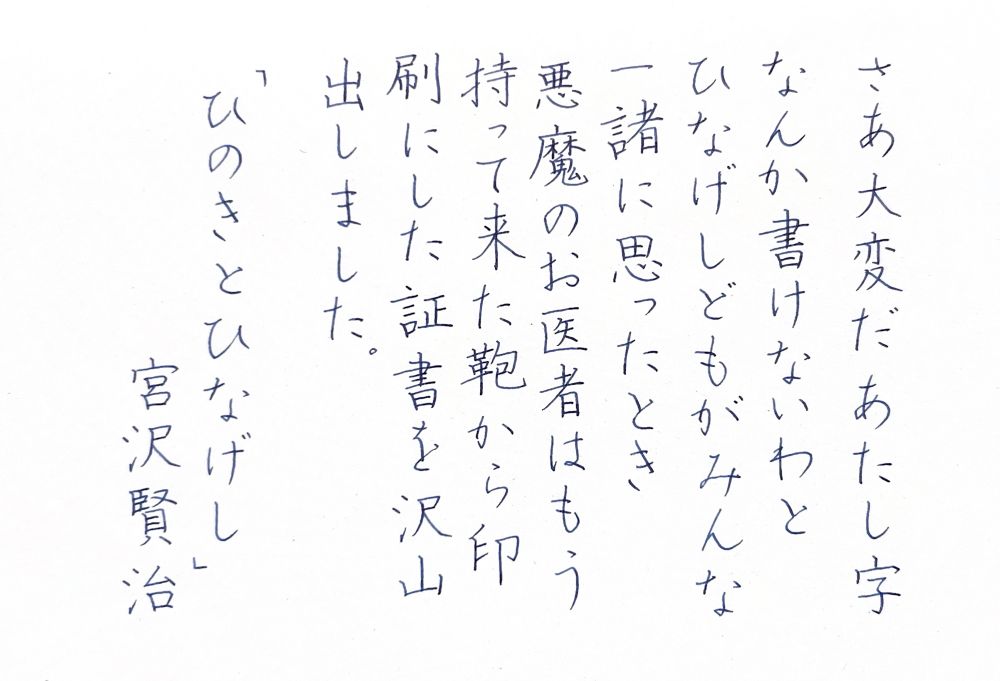 さあ大変だあたし字
なんか書けないわと
ひなげしどもがみんな
一諸に思ったとき
悪魔のお医者はもう
持って来た鞄から印
刷にした証書を沢山
出しました。
「ひのきとひなげし」
宮沢賢治